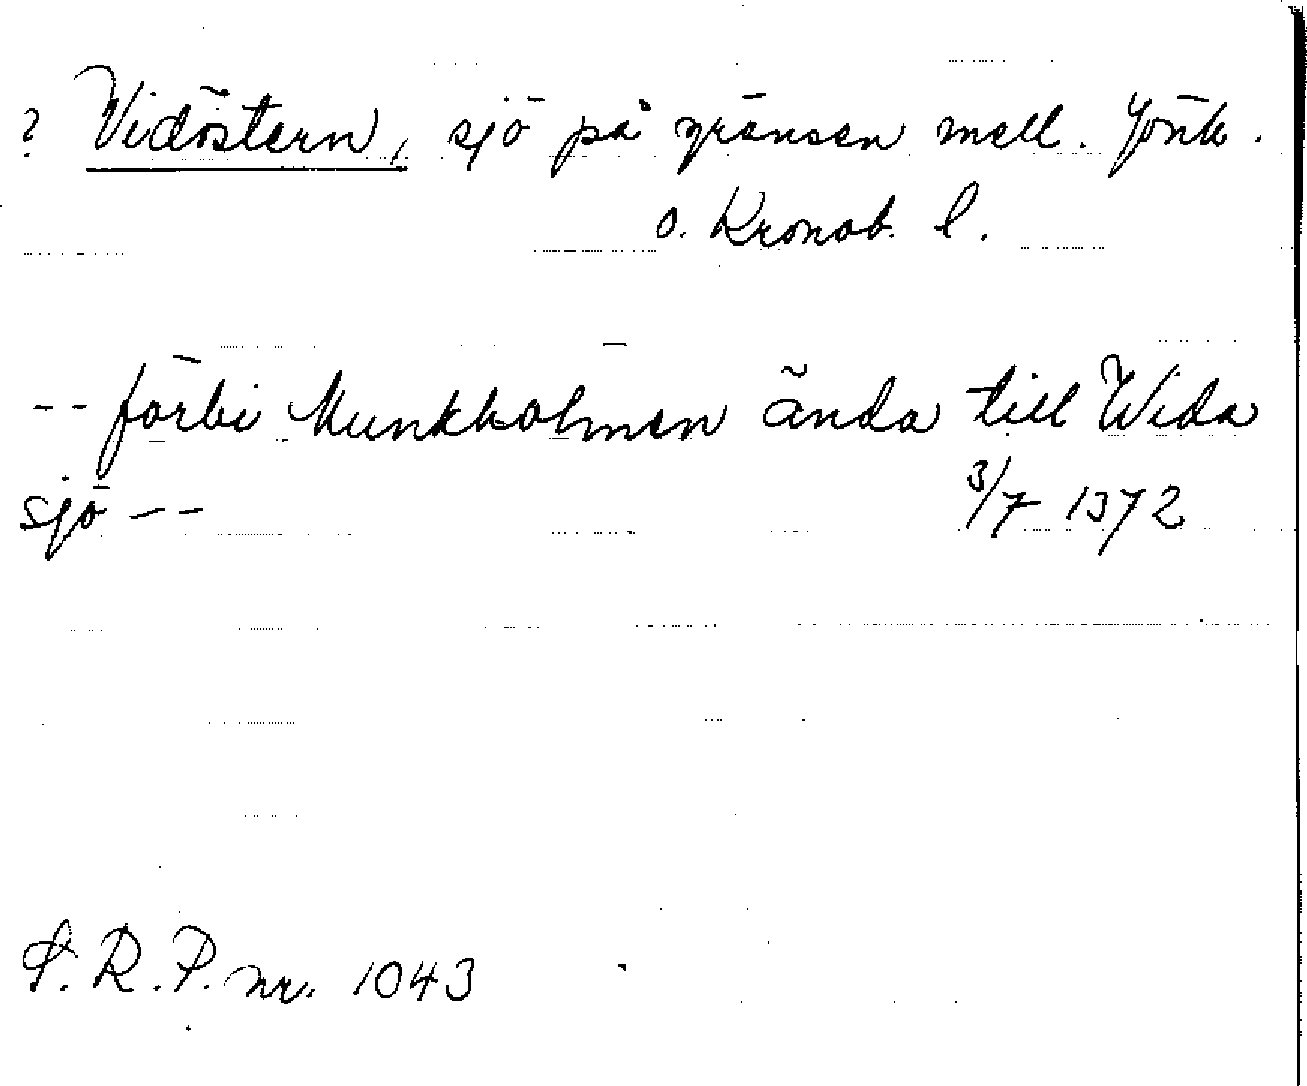 ? Vidöstern, sjö på gränsen mell. Jönk.
o. Kronob. l.
-- förbi Munkholmen ända till Wida
sjö -- 3/7 1372
S. R. P. nr. 1043